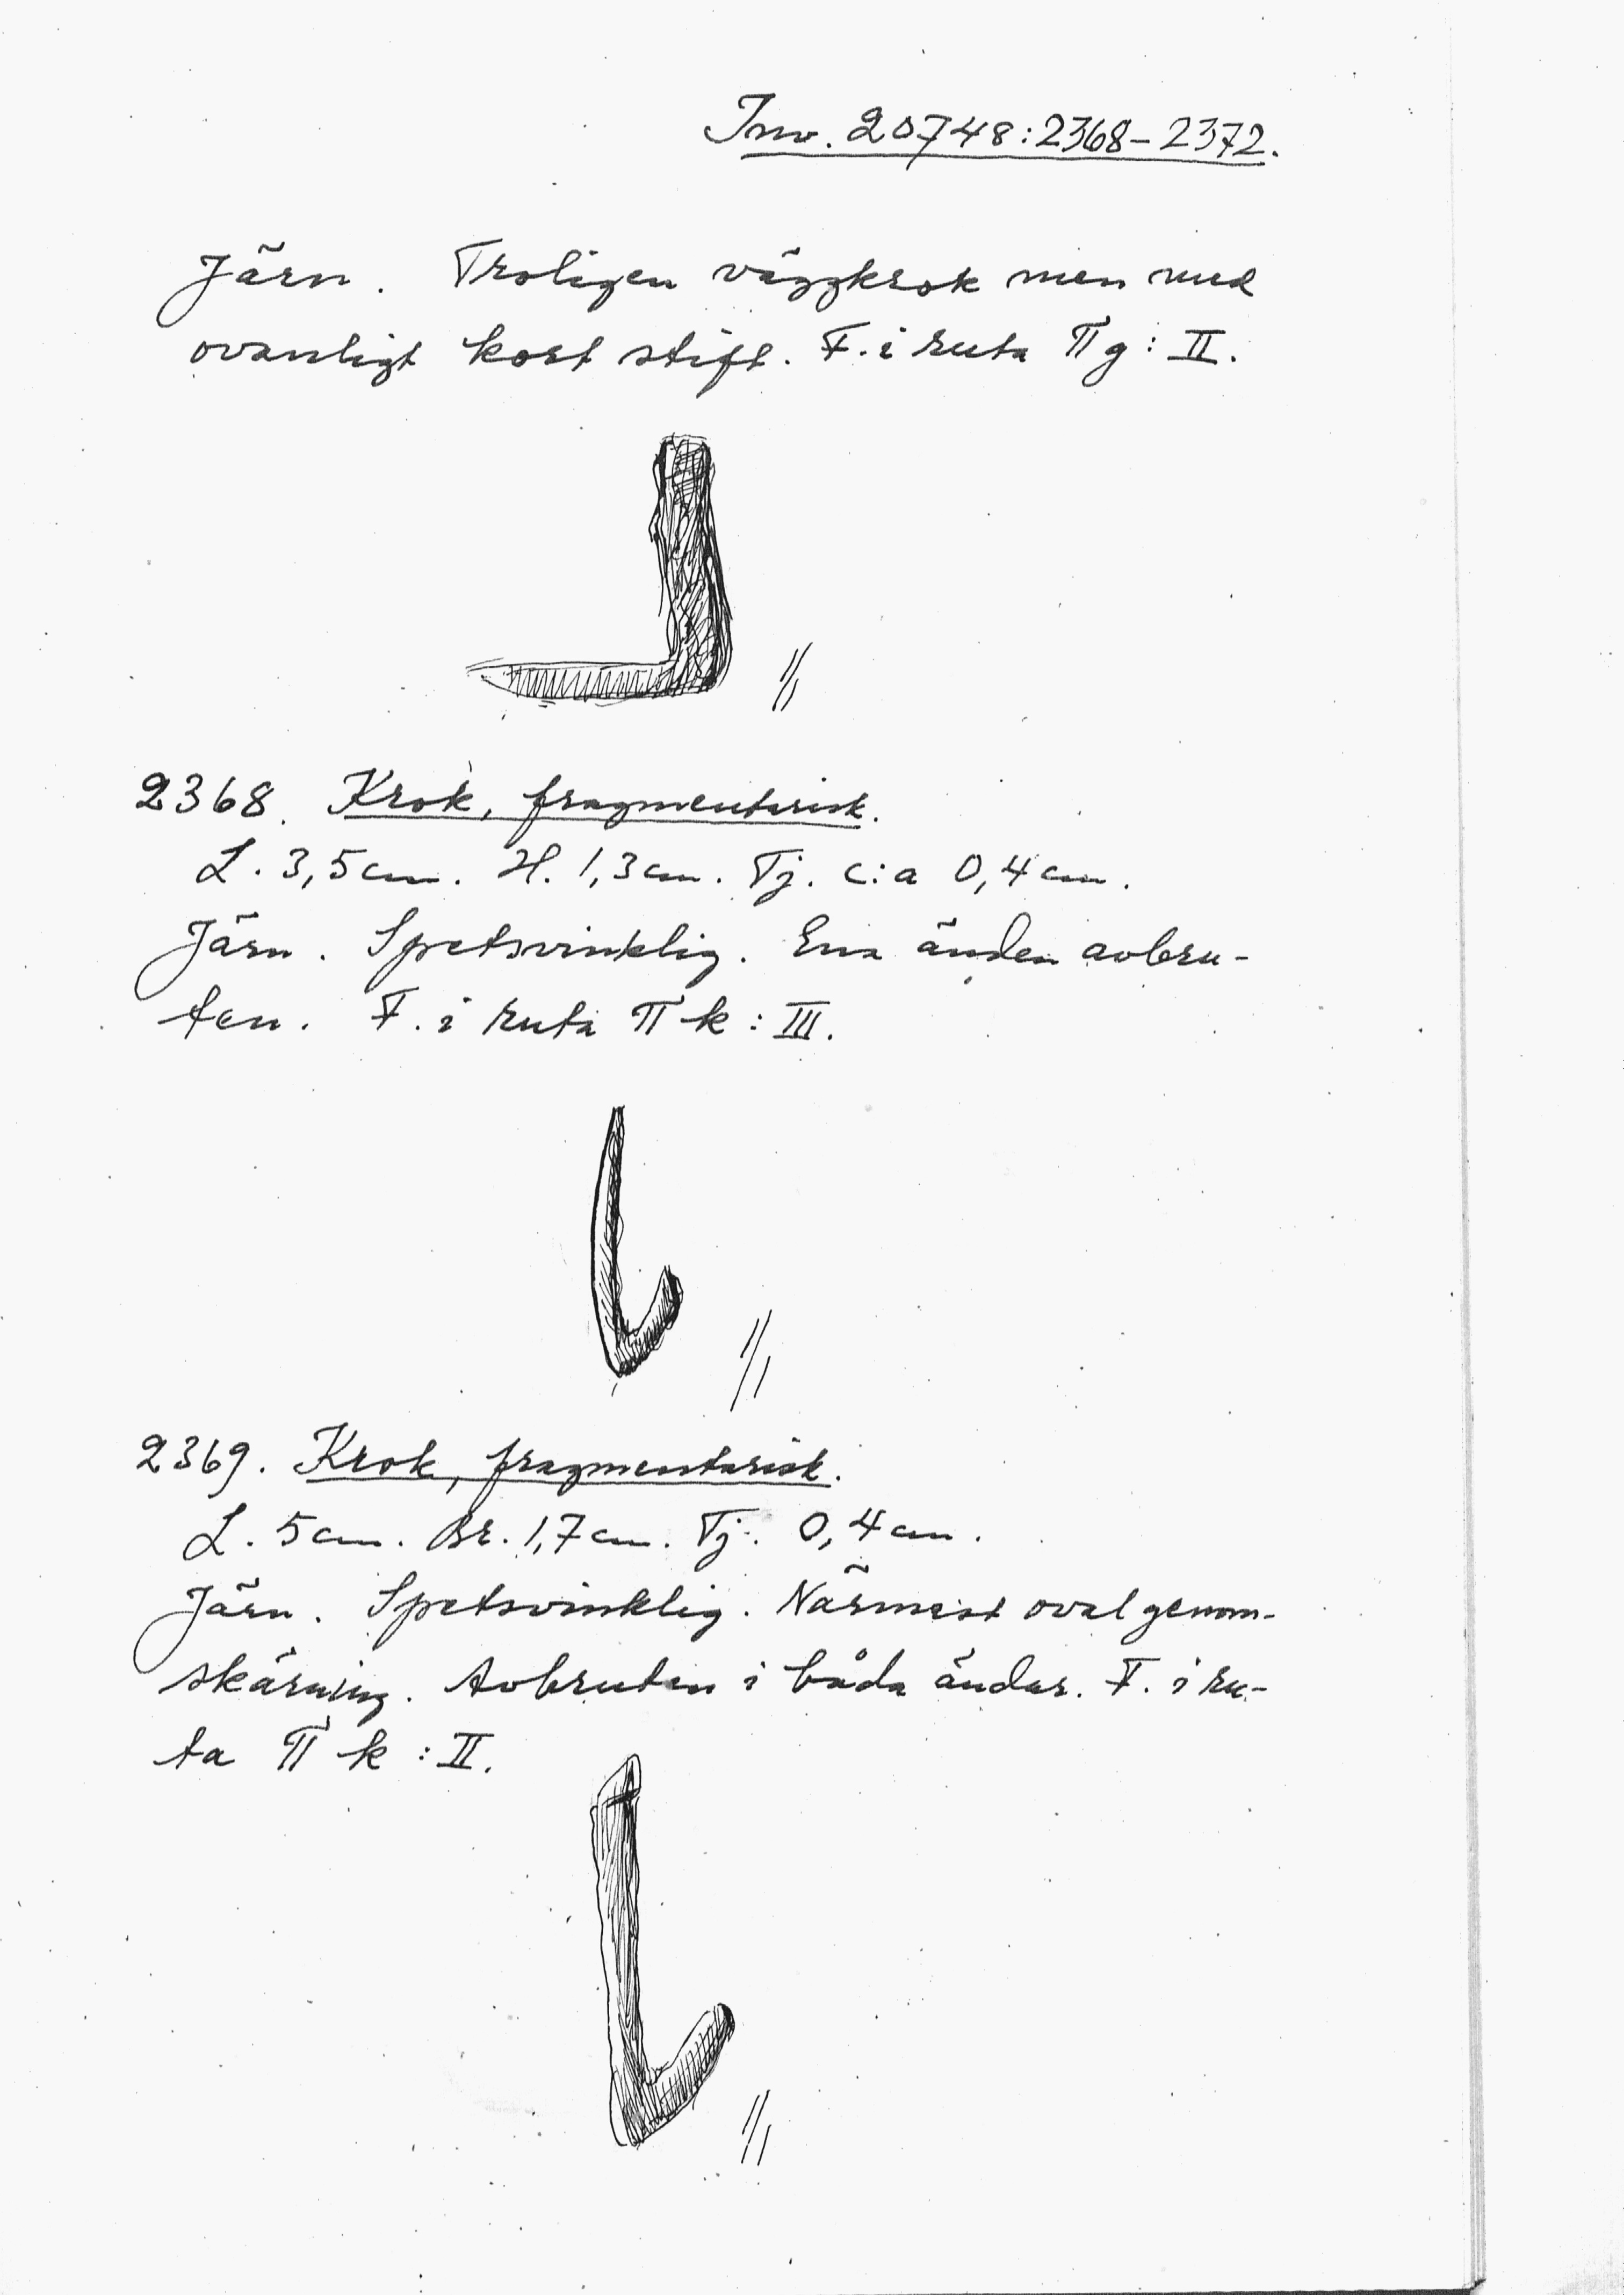 Inv. 20748:2368-2372.
Järn. Troligen väggkrok men med
ovanligt kort stift. F. i ruta Π g : II.
1/1
2368. Krok, fragmentarisk.
L. 3,5 cm. H. 1,3 cm. Tj. c:a 0,4 cm.
Järn. Spetsvinklig. Ena änden avbru-
ten. F. i ruta Π k : III.
1/1
2369. Krok, fragmentarisk.
L. 5 cm. Br. 1,7 cm. Tj. 0,4 cm.
Järn. Spetsvinklig. Närmast oval genom-
skärning. Avbruten i båda ändar. F. i ru-
ta Π k : II.
1/1